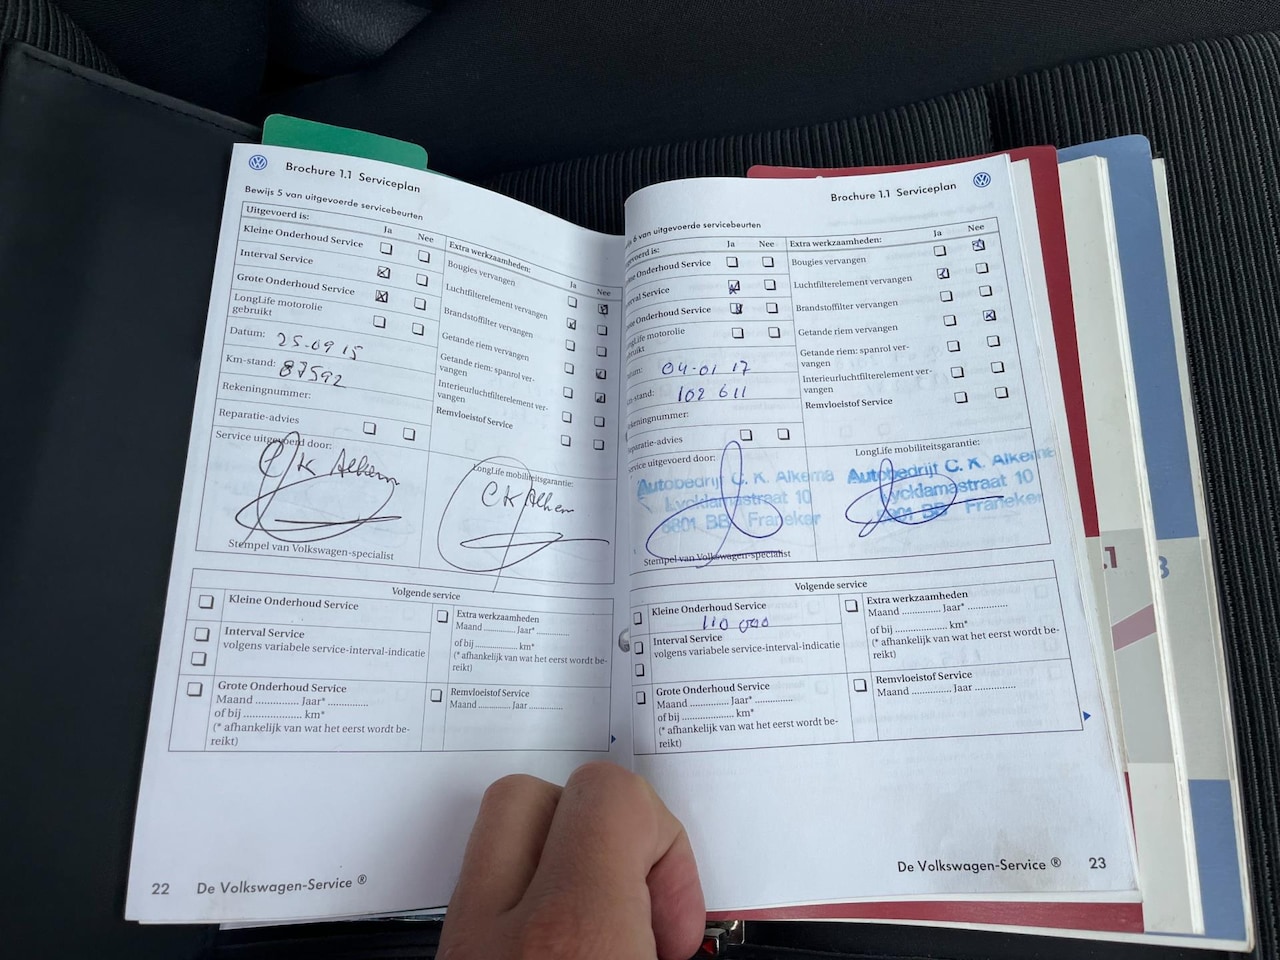 Brochure 1.1 Serviceplan
Bewijs 5 van uitgevoerde servicebeurten
Uitgevoerd is:
Ja Nee
Kleine Onderhoud Service
Interval Service
Grote Onderhoud Service
LongLife motorolie
gebruikt
Datum: 25-09 15
Km-stand: 87592
Rekeningnummer:
Reparatie-advies
Extra werkzaamheden:
Ja Nee
Bougies vervangen
Luchtfilterelement vervangen
Brandstoffilter vervangen
Getande riem vervangen
Getande riem: spanrol ver-
vangen
Interieurluchtfilterelement ver-
vangen
Remvloeistof Service
Service uitgevoerd door:
CK Alkema
Stempel van Volkswagen-specialist
LongLife mobiliteitsgarantie:
CK Alkema
Volgende service
Kleine Onderhoud Service
Interval Service
volgens variabele service-interval-indicatie
Grote Onderhoud Service
Maand ............. Jaar* .............
of bij .................. km*
(* afhankelijk van wat het eerst wordt be-
reikt)
Extra werkzaamheden
Maand ............ Jaar* .............
of bij .................. km*
(* afhankelijk van wat het eerst wordt be-
reikt)
Remvloeistof Service
Maand ............ Jaar .............
22 De Volkswagen-Service ®
Brochure 1.1 Serviceplan
6 van uitgevoerde servicebeurten
Ja Nee
Onderhoud Service
Service
Onderhoud Service
LongLife motorolie
gebruikt
04-01 17
102 611
Reparatie-advies
Extra werkzaamheden:
Ja Nee
Bougies vervangen
Luchtfilterelement vervangen
Brandstoffilter vervangen
Getande riem vervangen
Getande riem: spanrol ver-
vangen
Interieurluchtfilterelement ver-
vangen
Remvloeistof Service
Service uitgevoerd door:
Autobedrijf C. K. Alkema
Lycklamastraat 10
8801 BB Franeker
Stempel van Volkswagen-specialist
LongLife mobiliteitsgarantie:
Autobedrijf C. K. Alkema
Lycklamastraat 10
8801 BB Franeker
Volgende service
Kleine Onderhoud Service
110 000
Interval Service
volgens variabele service-interval-indicatie
Grote Onderhoud Service
Maand ............. Jaar* .............
of bij .................. km*
(* afhankelijk van wat het eerst wordt be-
reikt)
Extra werkzaamheden
Maand ............ Jaar* .............
of bij .................. km*
(* afhankelijk van wat het eerst wordt be-
reikt)
Remvloeistof Service
Maand ............ Jaar .............
De Volkswagen-Service ® 23
.1
3